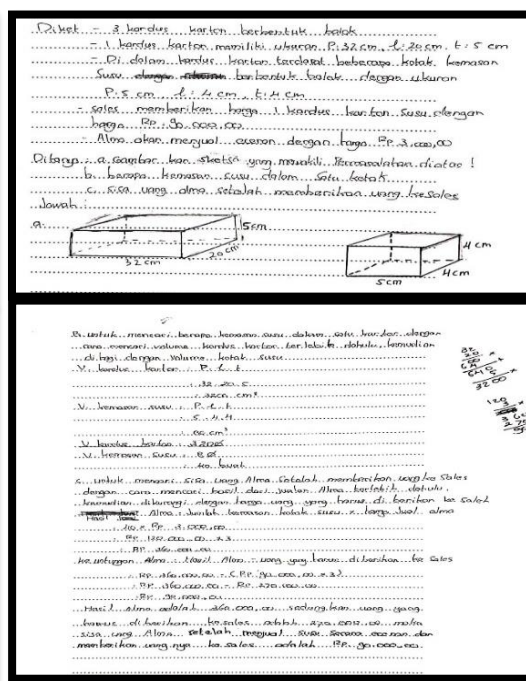 Diket - 3 kardus karton berbentuk balok
- 1 kardus karton memiliki ukuran P: 32 cm, l: 20 cm, t: 5 cm
- Di dalam kardus karton terdapat beberapa kotak kemasan
susu berbentuk balok dengan ukuran
P: 5 cm l: 4 cm, t: 4 cm
- sales memberikan harga 1 kardus karton susu dengan
harga Rp. 90.000,00
- Alma akan menjual eceran dengan harga Rp 3.000,00
Ditanya: a. Gambar kan sketsa yang mewakili Permasalahan diatas!
b. berapa kemasan susu dalam satu kotak
c. sisa uang alma setelah memberikan uang ke sales
Jawab:
a.
5 cm
32 cm
20 cm
4 cm
4 cm
5 cm
B. untuk mencari berapa kemasan susu dalam satu kardus dengan
cara mencari volume kardus karton terlebih dahulu kemudian
di bagi dengan volume kotak susu
V. kardus karton: P. l. t
: 32. 20. 5
: 3200 cm³
V. kemasan susu: P. l. t
: 5. 4. 4
: 80 cm³
V. kardus karton: 3200
V. kemasan susu: 80
: 40 buah
32
20 ×
00
64
640
5 ×
3200
120
3 ×
360
c. untuk mencari sisa uang Alma setelah memberikan uang ke sales
dengan cara mencari hasil dari jualan Alma terlebih dahulu
kemudian dikurangi dengan harga uang yang harus di berikan ke sales
Hasil Alma: Jumlah kemasan kotak susu × harga jual alma
: 40 × Rp 3.000,00
: Rp 120.000,00 × 3
: Rp 360.000,00
keuntungan Alma: Hasil Alma - uang yang harus diberikan ke sales
: Rp 360.000,00 - (Rp. 90.000,00 × 3)
: Rp 360.000,00 - Rp 270.000,00
: Rp 90.000,00
Hasil Alma adalah 360.000,00 sedangkan uang yang
harus diberikan ke sales adalah 270.000,00 maka
sisa uang Alma setelah menjual susu secara eceran dan
memberikan uang nya ke sales adalah Rp. 90.000,00